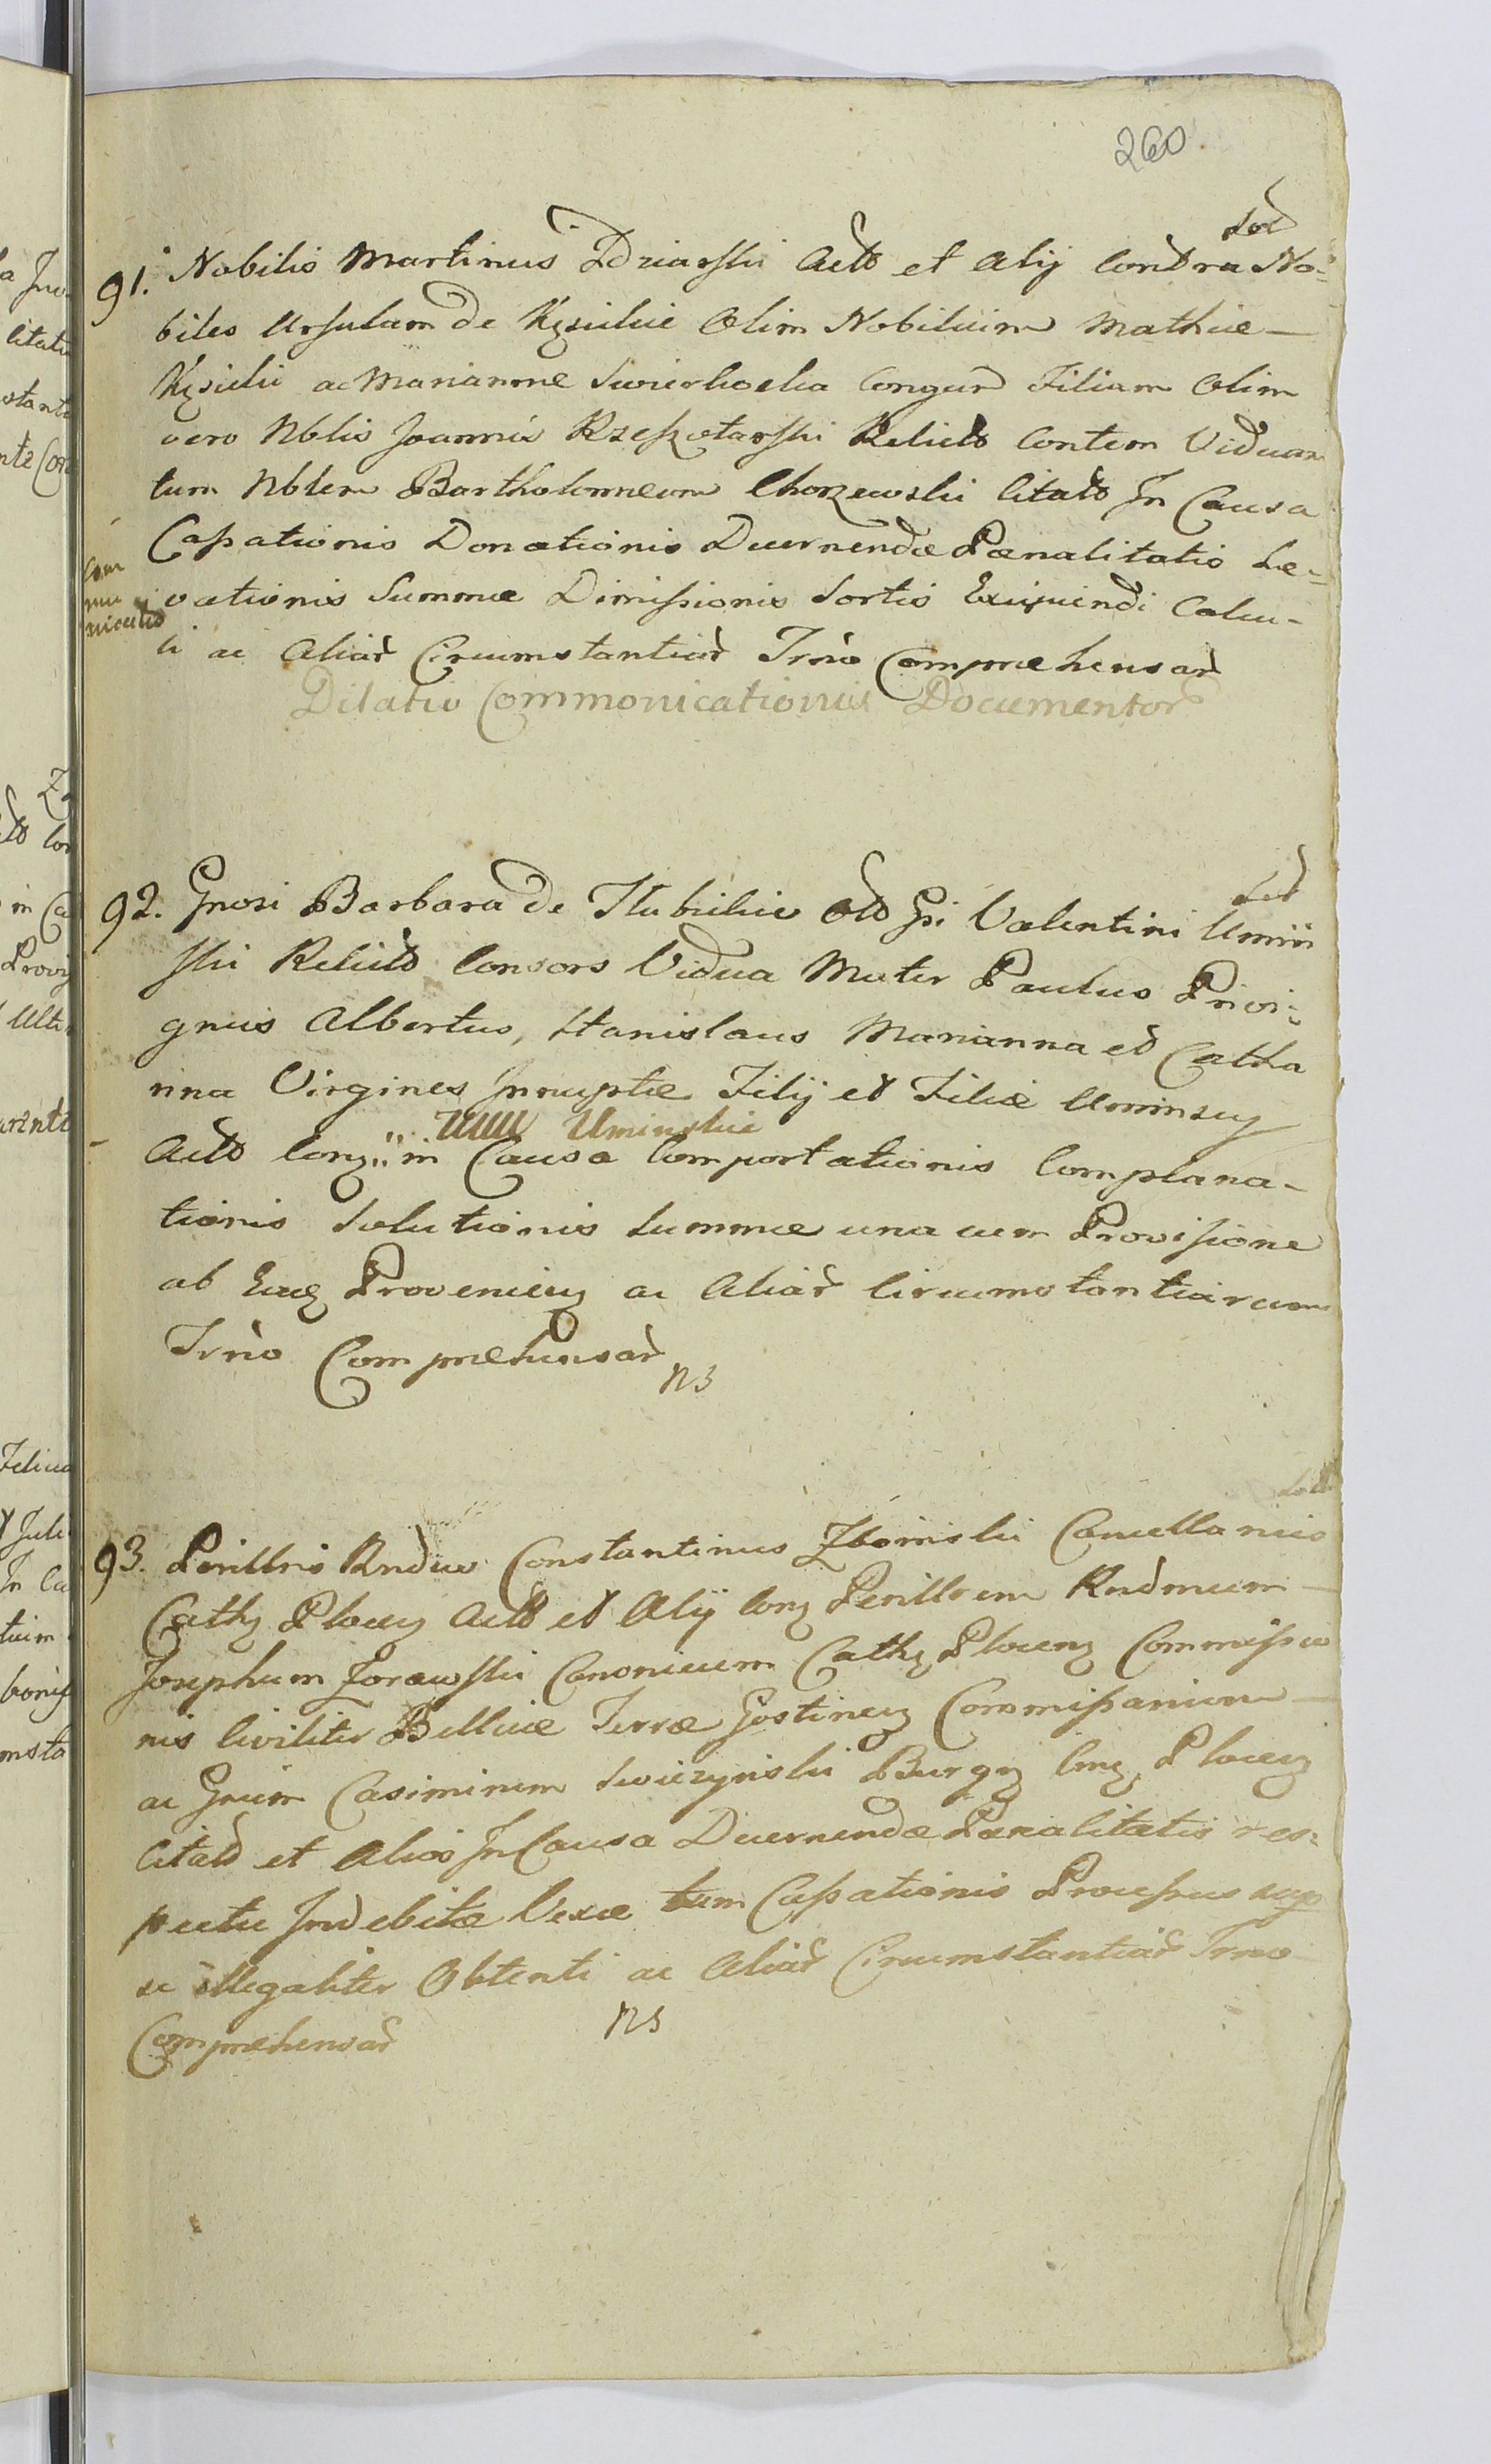 260
Sol
91. Nobilis Martinus Dziarski Actō et Alij Contra No-
biles Ursulam de Kęsickie Olim Nobiluim Mathiæ
Kęsicki ac Mariannæ Swierkoska Congum Filiam Olim
vero Nblis Joannis Rzeszotarski Relictō Contem Viduam
tum Nblem Bartholomeum Chorzewski Citatō In Causa
Cassationis Donationis Decernendæ Pænalitatis Le-
vationis Summæ Dimissionis Sortis Exijuiendi Calcu-
li ac Aliar̃ Circumstantiar̃ Trmo Compræhensar̃
Com
mu
nicatio
Dilatio Commonicationis Documentor̃
Sol
92. Gnosi Barbara de Slubickie Old Gsi Valentini Umiń
ski Relictō Consors Vidua Mater Paulus Privi-
gnus Albertus, Stanislaus Marianna et Catha
rina Virgines Innuptæ Filij et Filiæ Uminscy
Uminskie
Actō Conz in Causa Comportationis Complana-
tionis Solutionis Summæ una cum Provisione
ab Eaq Provenieñ ac Aliar̃ Circumstantiarum
Trmo Compræhensar̃
NS
Sol
93. Perillris Rndus Constantinus Zboinski Cancellarius
Cathz Ploceñ Actō et Alij Conz Perillrem Rndmum
Josephum Jorawski Canonicum Cathz Plocenz Commissio
nis Civiliter Bellicæ Terræ Gostineñ Commissarium
ac Gnum Casimirum Swiezynski Burgz Cmz Ploceñ
Citatō et Alios In Causa Decernendæ Pænalitatis res-
pectu Indebitæ Vexæ tum Cassationis Processus sup
se illegaliter Obtenti ac Aliar̃ Circumstantiar̃ Trmo
Compræhensar̃
NS